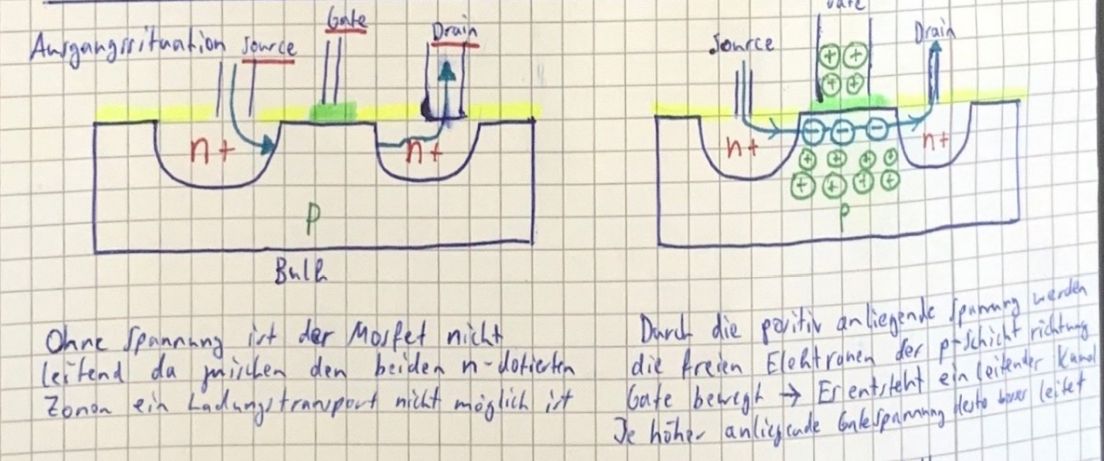 Ausgangssituation Source Gate Drain
n+ n+
p
Bulk
Ohne Spannung ist der Mosfet nicht
leitend da zwischen den beiden n-dotierten
Zonen ein Ladungstransport nicht möglich ist
Source Drain
+ +
+ +
n+ − − − n+
+ + + +
+ + + +
p
Durch die positiv anliegende Spannung werden
die freien Elektronen der p-Schicht richtung
Gate bewegt → Es entsteht ein leitender Kanal
Je höher anliegende Gatespannung desto leitet